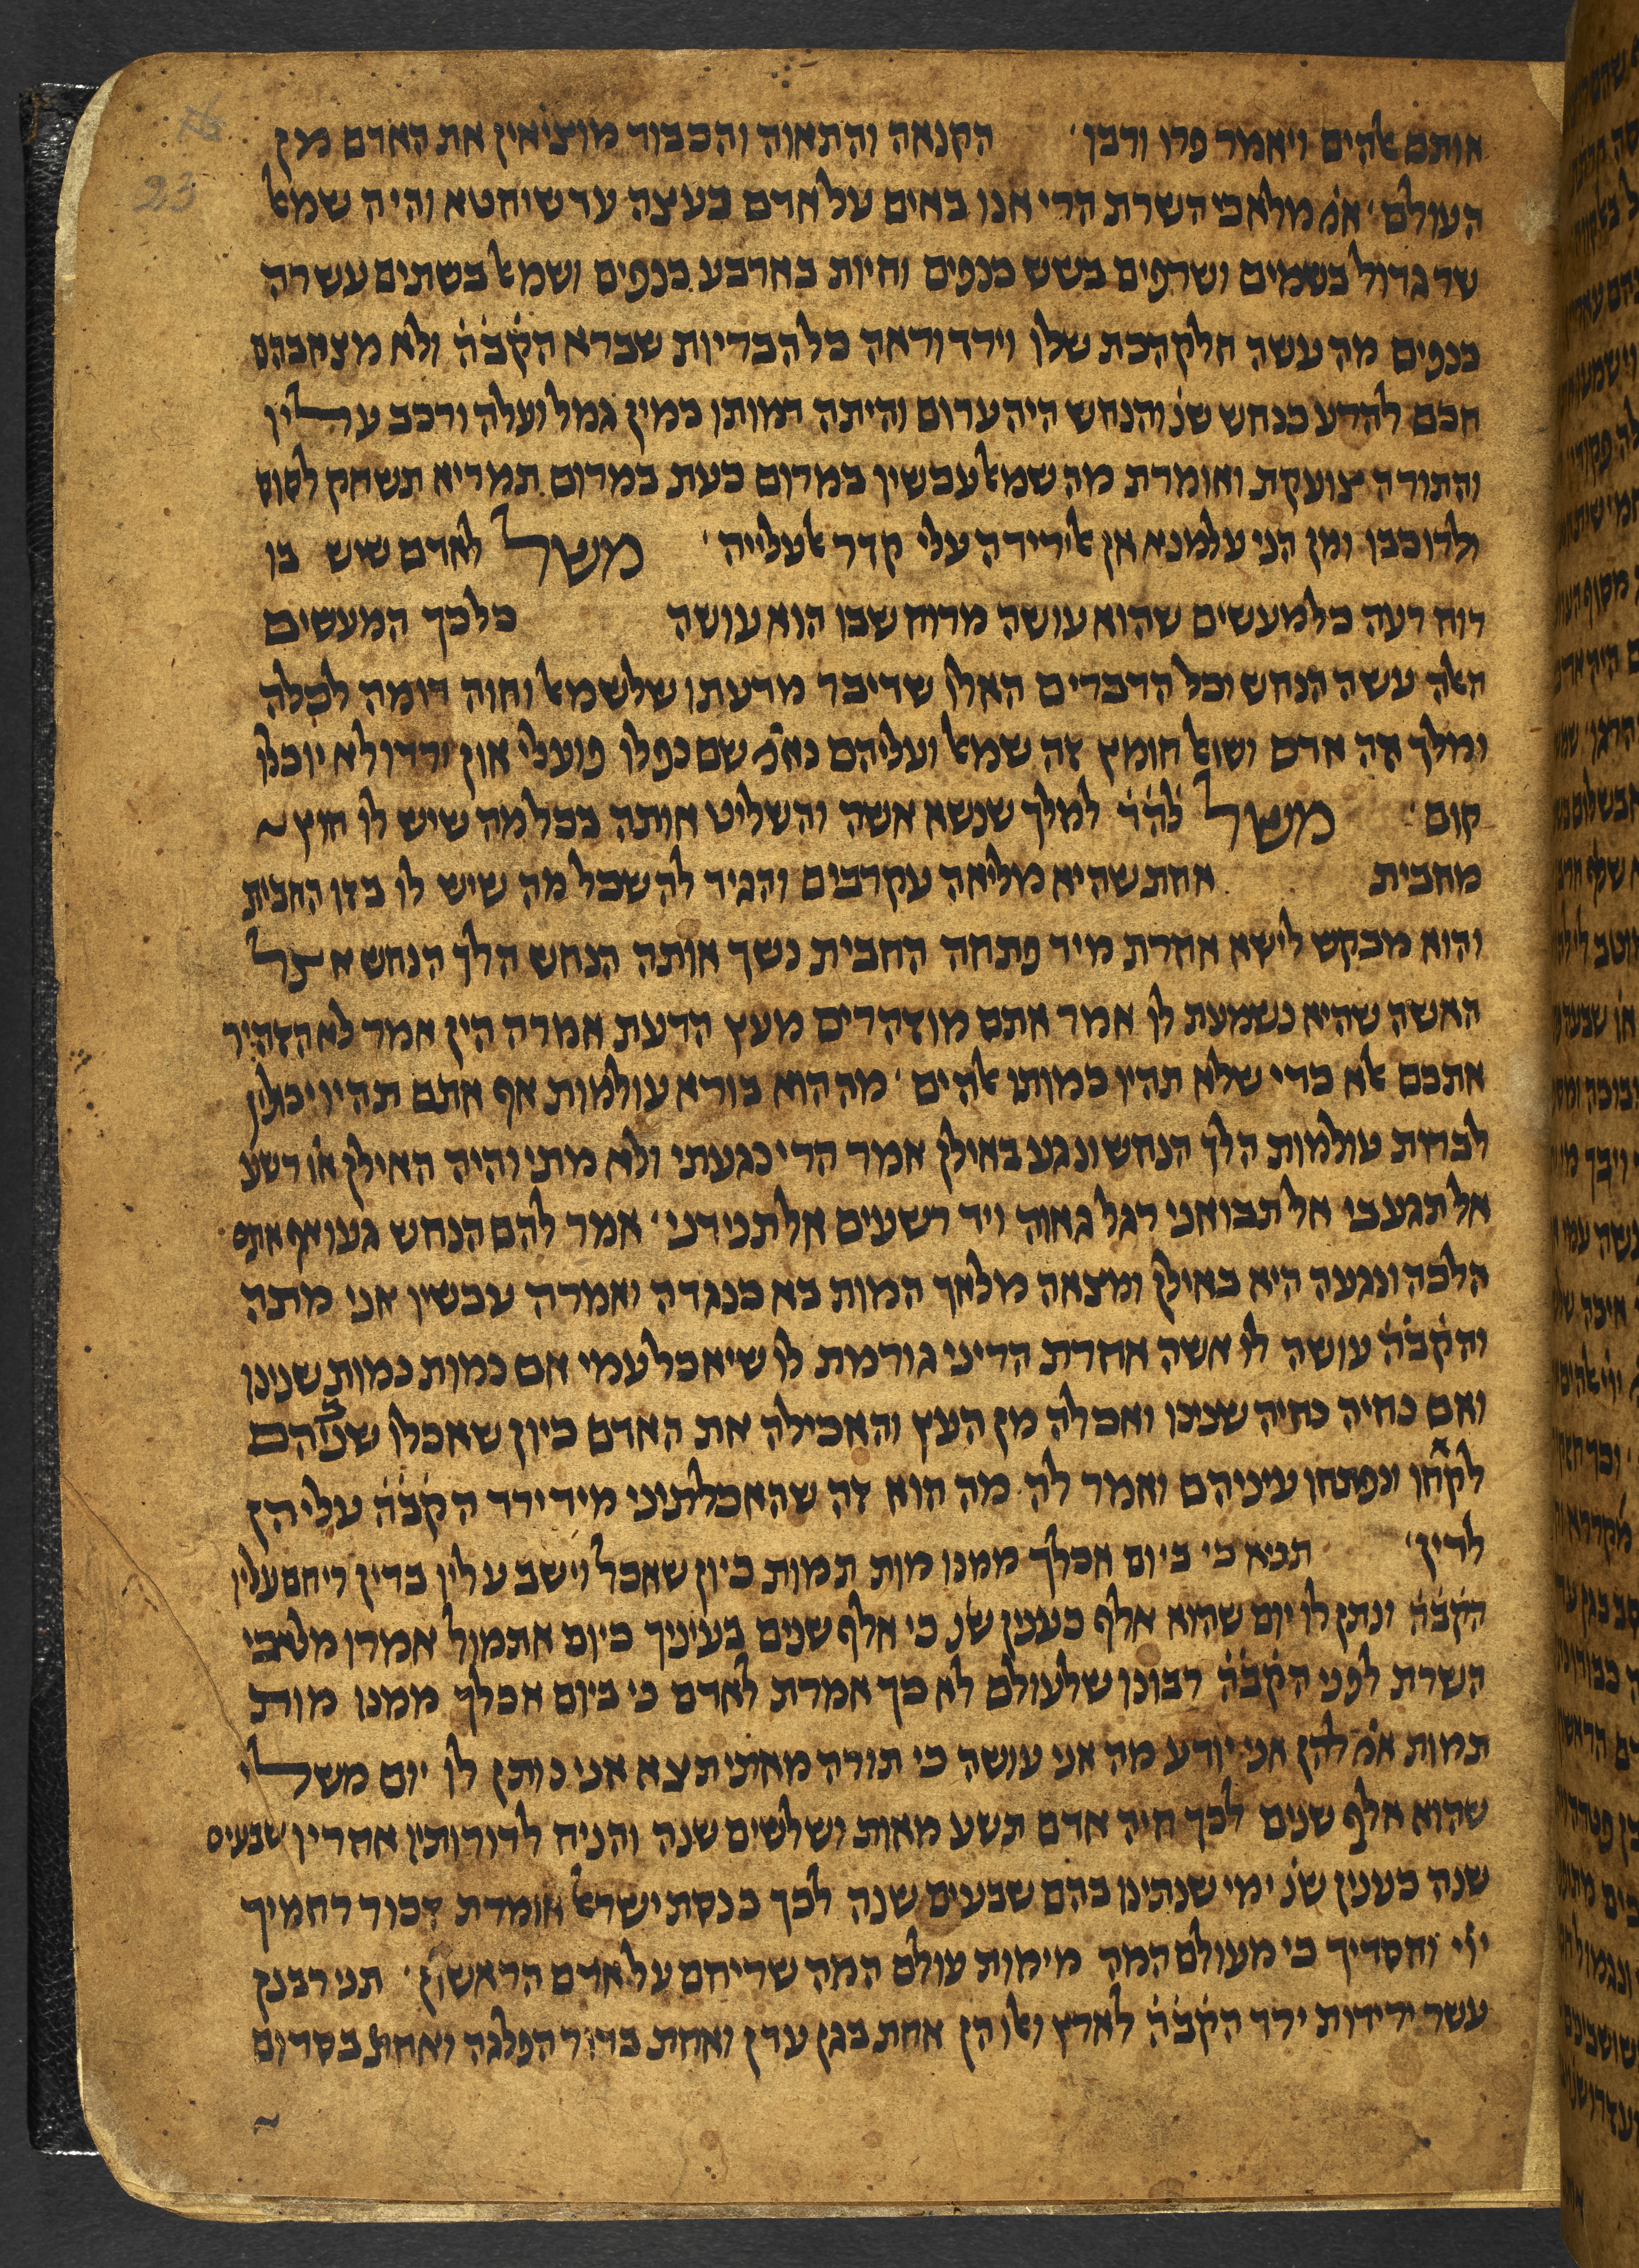 23
אותם אלהים ויאמר פרו ורבו׳ הקנאה והתאוה והכבוד מוציאין את האדם מן
העולם׳ אמ׳ מלאכי השרת הרי אנו באים על אדם בעצה עד שיחטא והיה שמאל
שר גדול בשמים ושרפים בשש כנפים וחיות בארבע כנפים ושמאל בשתים עשרה
כנפים מה עשה חלק הכת שלו וירד וראה כל הבריות שברא הקבה ולא מצא בהם
חכם להרע כנחש שנ׳ והנחש היה ערום והיתה דמותו כמין גמל ועלה ורכב עליו
והתורה צועקת ואומרת מה שמאל עכשיו במרום כעת במרום תמריא תשחק לסוס
ולרוכבו ומן הני עלמנא אן אירידה עלי קדר אעלייה׳ משל לאדם שיש בו
רוח רעה כל מעשים שהוא עושה מרוח שבו הוא עושה כל כך המעשים
האלה עשה הנחש וכל הדברים האלו שדיבר מדעתו של שמאל וחוה דומה לכלה
ומלך זה אדם ושואל חומץ זה שמאל ועליהם נאמ׳ שם נפלו פועלי און ודחו ולא יוכלו
קום׳ משל להד למלך שנשא אשה והשליט אותה בכל מה שיש לו חוץ
מחבית אחת שהיא מליאה עקרבים והגיד לה שכל מה שיש לו בזו החבית
והוא מבקש לישא אחרת מיד פתחה החבית נשך אותה הנחש הלך הנחש אצל
האשה שהיא נשמעת לו אמר אתם מוזהרים מעץ הדעת אמרה הין אמר לא הזהיר
אתכם אלא כדי שלא תהיו כמותו אלהים׳ מה הוא בורא עולמות אף אתם תהיו יכולין
לברות עולמות הלך הנחש ונגע באילן אמר הרי נגעתי ולא מתי והיה האילן או׳ רשע
אל תגע בי אל תבואני רגל גאוה ויד רשעים אל תנידני׳ אמר להם הנחש געו אף אתם
הלכה ונגעה היא באילן ומצאה מלאך המות בא כנגדה ואמרה עכשיו אני מתה
והקבה עושה לו אשה אחרת הריני גורמת לו שיאכל עמי אם נמות נמות שנינו
ואם נחיה נחיה שנינו ואכלה מן העץ והאכילה את האדם כיון שאכלו שניהם
לקחו ונפתחו עיניהם ואמר לה מה הוא זה שהאכלתיני מיד ירד הקבה עליהן
לדין׳ תניא כי ביום אכלך ממנו מות תמות כיון שאכל וישב עליו בדין ריחם עליו
הקבה ונתן לו יום שהוא אלף כענין שנ׳ כי אלף שנים בעיניך כיום אתמול אמרו מלאכי
השרת לפני הקבה רבונו של עולם לא כך אמרת לאדם כי ביום אכלך ממנו מות
תמות אמ׳ להן אני יודע מה אני עושה כי תורה מאתי תצא אני נותן לו יום משלי
שהוא אלף שנים לכך חיה אדם תשע מאות ושלשים שנה והניח לדורותיו אחריו שבעים
שנה כענין שנ׳ ימי שנתינו בהם שבעים שנה לכך כנסת ישראל אומרת זכור רחמיך
ייי וחסדיך כי מעולם המה מימות עולם המה שריחם על אדם הראשון׳ תני רבנן
עשר ירידות ירד הקבה לארץ ואלו הן אחת בגן עדן ואחת בדור הפלגה ואחת בסדום